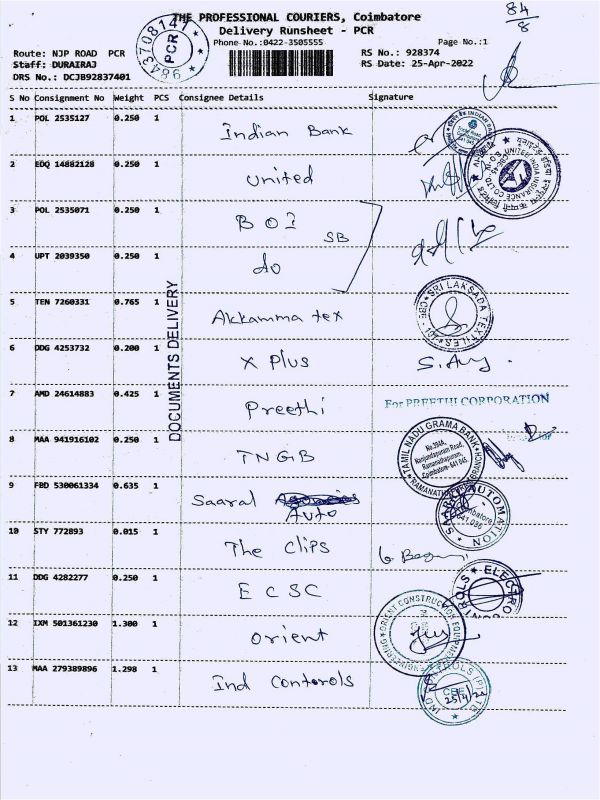 84
8
THE PROFESSIONAL COURIERS, Coimbatore
Delivery Runsheet - PCR
Phone No.:0422-3505555
Page No.:1
Route: NJP ROAD PCR
RS No.: 928374
Staff: DURAIRAJ
RS Date: 25-Apr-2022
DRS No.: DCJB92837401
9843708147
PCR
S No Consignment No Weight PCS Consignee Details Signature
1 POL 2535127 0.250 1 Indian Bank
2 EDQ 14882128 0.250 1 United
UNITED INDIA INSURANCE CO. LTD.
3 POL 2535071 0.250 1 BOI
SB
4 UPT 2039350 0.250 1 do
DOCUMENTS DELIVERY
5 TEN 7260331 0.765 1 Akkamma tex
SRI LAKSADA TEXTILES
CBE
6 DDG 4253732 0.200 1 X Plus
7 AMD 24614883 0.425 1 Preethi
For PREETHI CORPORATION
8 MAA 941916102 0.250 1 TNGB
TAMIL NADU GRAMA BANK
Nanjundapuram Road,
Ramanathapuram,
Coimbatore- 641 045.
9 FBD 530061334 0.635 1 Saaral Auto
SAARAL AUTOMATION
Coimbatore
641 036
10 STY 772893 0.015 1 The Clips
11 DDG 4282277 0.250 1 ECSC
12 IXM 501361230 1.300 1 Orient
ORIENT CONSTRUCTION EQUIPMENT ENGINEERING
13 MAA 279389896 1.298 1 Ind Contorols
IND CONTROLS (P) LTD
CBE
25/4/22